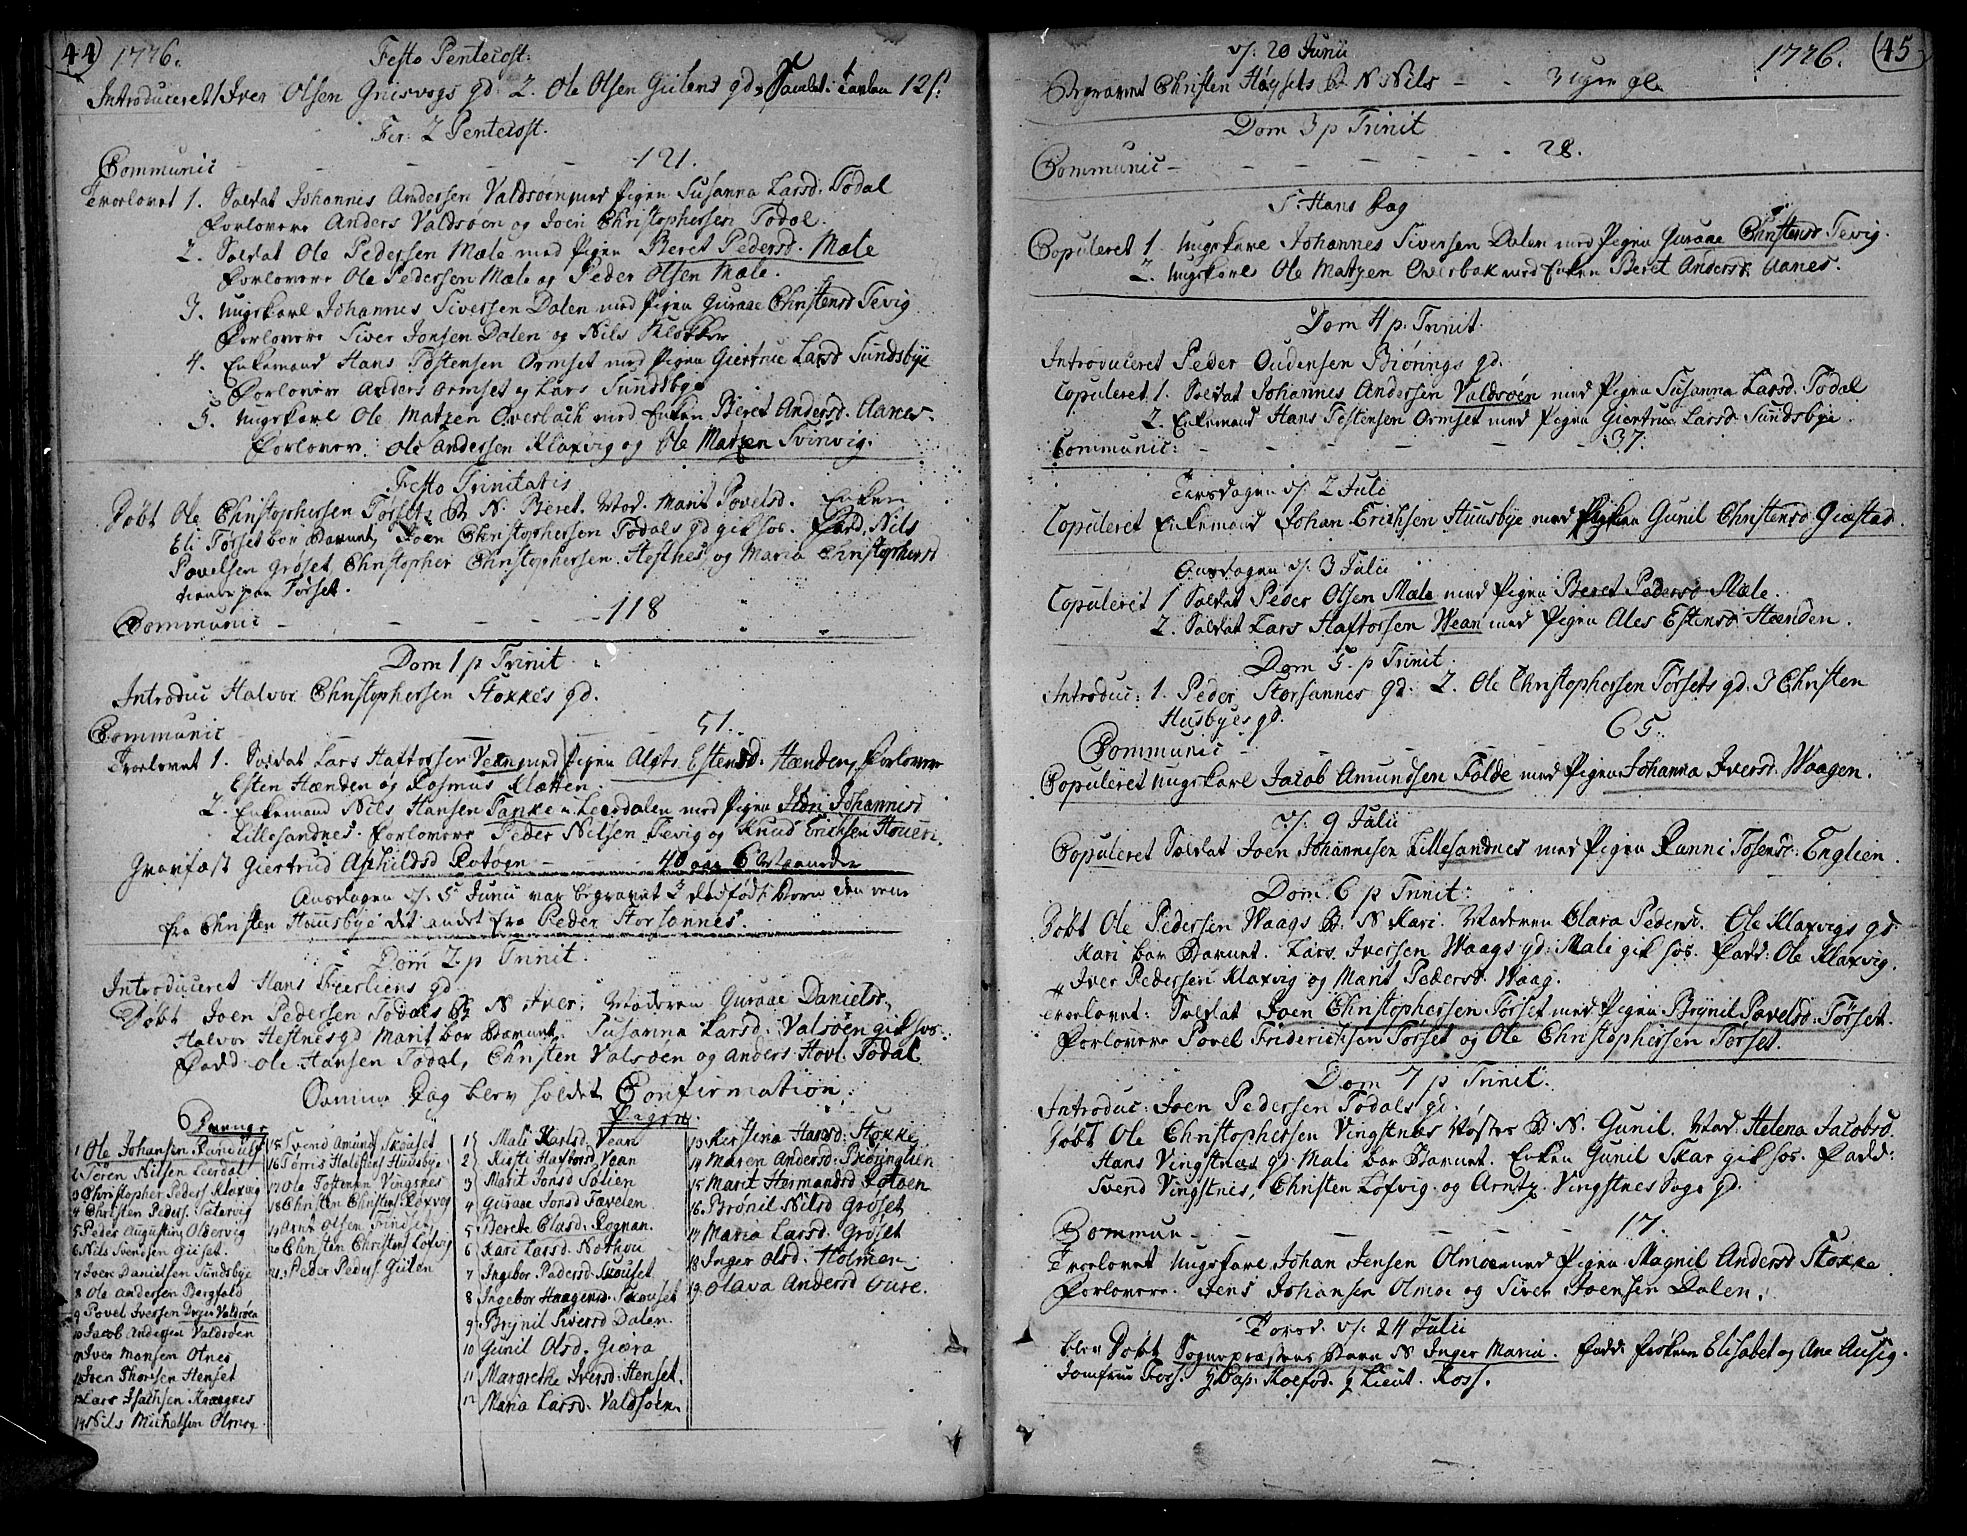 44 1776.
Festo Pentecost:
Introduceret 1 Iver Olsen Grisvogs gd. 2. Ole Olsen Giilens gd. Samlet i Tavlen 12 s.
Fer: 2 Pentecost.
Communic - - - - 121.
Trorlovet 1. Soldat Johannis Andersen Valdsøen med Pigen Susanna Larsd: Todal
Forlovere Anders Valdsøen og Joen Christophersen Todal.
2. Soldat Ole Pedersen Mæle med Pigen Beret Pedersd. Mæle
Forlovere Ole Pedersen Mæle og Peder Olsen Mæle.
3. Ungskarl Johannes Siversen Dalen med Pigen Guraae Christensd Tevig
Forlovere Siver Jonsen Dalen og Nils Klokker
4. Enkemand Hans Tostensen Ormset med Pigen Giertrue Larsd Sundsbye
Forlovere Anders Ormset og Lars Sundsbye
5. Ungskarl Ole Matzen Overbach med Enken Beret Andersd. Aanes.
Forlover: Ole Andersen Klaxvig og Ole Matzen Svinvig.
Festo Trinitatis
Døbt Ole Christophersen Torsets B N. Beret. Mod. Marit Povelsd. Enken
Eli Torset bar Barnet, Joen Christophersen Todals gd gik hos. Fad. Nils
Povelsen Grøset, Christopher Christophersen Hestnes, og Maria Christophersd
tiener paa Torset.
Communic - - - - 118
Dom 1 p Trinit
Introduc Halvor Christophersen Stokkes gd.
Communic - - - 51.
Trorlovet 1. Soldat Lars Haftorsen Vean med Pigen Alets Estensd. Hænden, Forlovere
Esten Hænden og Rasmus Kletten.
2. Enkemand Nils Hansen Tanke i Leerdalen med Pigen Ildri Johannisd
Lillesandnes. Forlovere Peder Nilsen Tevig og Knud Erichsen Houen.
Gravfæst Giertrud Aphildsd Rotøgn - - - 40 aar 6 Maaneder
Onsdagen d. 5 Junii var begravet 2 dødfødte Børn den eene
fra Christen Huusbye det andet fra Peder Storsannes.
Dom 2 p Trinit.
Introduceret Hans Fierliens gd
Døbt Joen Pedersen Todals B N Iver. Moderen Guraae Danielsd.
Halvor Hestnes gd Marit bar Barnet. Susanna Larsd. Valsøen gik hos.
Fadd Ole Hansen Todal, Christen Valsøen og Anders Hovl. Todal
Samme Dag blev holdet Confirmation.
Drenge
1 Ole Johansen Randulf
2 Sören Nilsen Leerdal
3 Christopher Peders Klaxvig
4 Christen Peders. Sætervig
5 Peder Augustin Oldervig
6 Nils Svendsen Giiset.
7 Joen Danielsen Sundsbye
8 Ole Andersen Bergfald
9 Povel Iversen Valdsøen
10 Jacob Andersen Valdsøen
11 Iver Monsen Otnes
12 Iven Thorsen Henset
13 Lars Isachsen Kraagnes
14 Nils Michelsen Olmoe
15 Svend Amunds Skouset
16 Torris Halstens Huusbye
17 Ole Tostensen Vingsnes
18 Christen Christens. Klaxvig
19 Arnt Olsen
20 Christen Christens Lofvig
21. Peder Peders Giilen
Pigen.
1 Mali Karlsd. Vean
2 Kirsti Haftorsd Vean
3 Marit Jonsd Solien
4 Guraae Jonsd Tavelen
5 Berete Olasd. Rognan
6 Kari Larsd. Nothou
7 Ingebor Pedersd. Skouset
8 Ingebor Haagensd. Skouset
9 Brynil Siversd Dalen
10 Gunil Olsd. Giæra
11 Margrethe Iversd. Henset.
12 Maria Larsd. Valdsøen
13 Kirstina Hansd. Stokke
14 Maren Andersd. Skouglien
15 Marit Hermandsd Holven
16. Brønil Nilsd Grøset
17 Maria Larsd. Grøset
18 Inger Olsd. Holmen
19. Olava Andersd Oure.
1776. 45
d. 20 Junii
Begravet Christen Høysets B. N Nils - - 3 uger gl.
Dom 3 p Trinit
Communic - - - - - 28.
S. Hans Dag
Copuleret 1 Ungskarl Johannes Siversen Dalen med Pigen Guraae Christensd Tevig.
2. Ungskarl Ole Matzen Overbak med Enken Beret Andersd. Aanes.
Dom 4 p. Trinit.
Introduceret Peder Oudensen Biørings gd.
Copuleret. 1. Soldat Johannes Andersen Valdsøen med Pigen Susanna Larsd. Todal
2. Enkemand Hans Tostensen Ormset med Pigen Giertrue Larsd. Sundsbye
Communic: - - - - 37.
Tirsdagen d. 2 Juli
Copuleret Enkemand Johan Erichsen Huusbye med Pigen Gunil Christensd. Giæstad.
Onsdagen d. 3 Julii
Copuleret 1 Soldat Peder Olsen Mæle med Pigen Beret Pedersd Mæle.
2. Soldat Lars Haftorsen Wean med Pigen Ales Estensd Hænden.
Dom 5. p Trinit.
Introduc: 1. Peder Storsannes gd. 2. Ole Christophersen Torsets gd. 3 Christen
Husbyes gd.
Communic - 65.
Copuleret Ungskarl Jacob Amundsen Folde med Pigen Johanna Iversd. Waagen.
d. 9 Julii
Copuleret Soldat Joen Johannesen Lillesandnes med Pigen Ranni Tosensd: Englien.
Dom. 6 p Trinit:
Døbt Ole Pedersen Waags B. N Kari. Moderen Clara Pedersd. Ole Klaxvigs gd.
Kari bar Barnet. Lars Iversen Waags gd: Mali gik hos. Fadd: Ole Klaxvig.
Iver Pedersen Klaxvig og Marit Pedersd Waag.
Trorlovet: Soldat Joen Christophersen Torset med Pigen Brynil Povelsd. Torset.
Forlovere Povel Friderichsen Torset og Ole Christophersen Torset.
Dom 7 p Trinit.
Introduc: Joen Pedersen Todals gd.
Døbt Ole Christophersen Vingstnæs B. N. Gunil. Mod: Helena Jacobsd.
Hans Vingstnæs gd. Mali bar Barnet. Enken Gunil Skar gik hos. Fadd:
Svend Vingstnes, Christen Lofvig og Arntz Vingstnes Saga gd.
Commun - - - - 17.
Trorlovet Ungskarl Johan Jensen Olmoe med Pigen Magnil Andersd Stokke
Forlovere. Jens Johansen Olmoe og Siver Joensen Dalen.
Torsd. d. 24 Julii
blev Døbt Sogneprestens Barn N Inger Maria. Fadd: Frøknerne Elisabet og Ane Ausig.
Jomfrue Foss. Cap. Kolefod. Lieut. Ross.